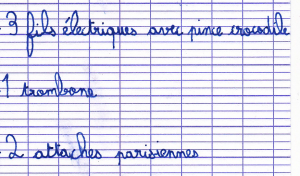 - 3 fils électriques avec pince crocodile
- 1 trombone
- 2 attaches parisiennes